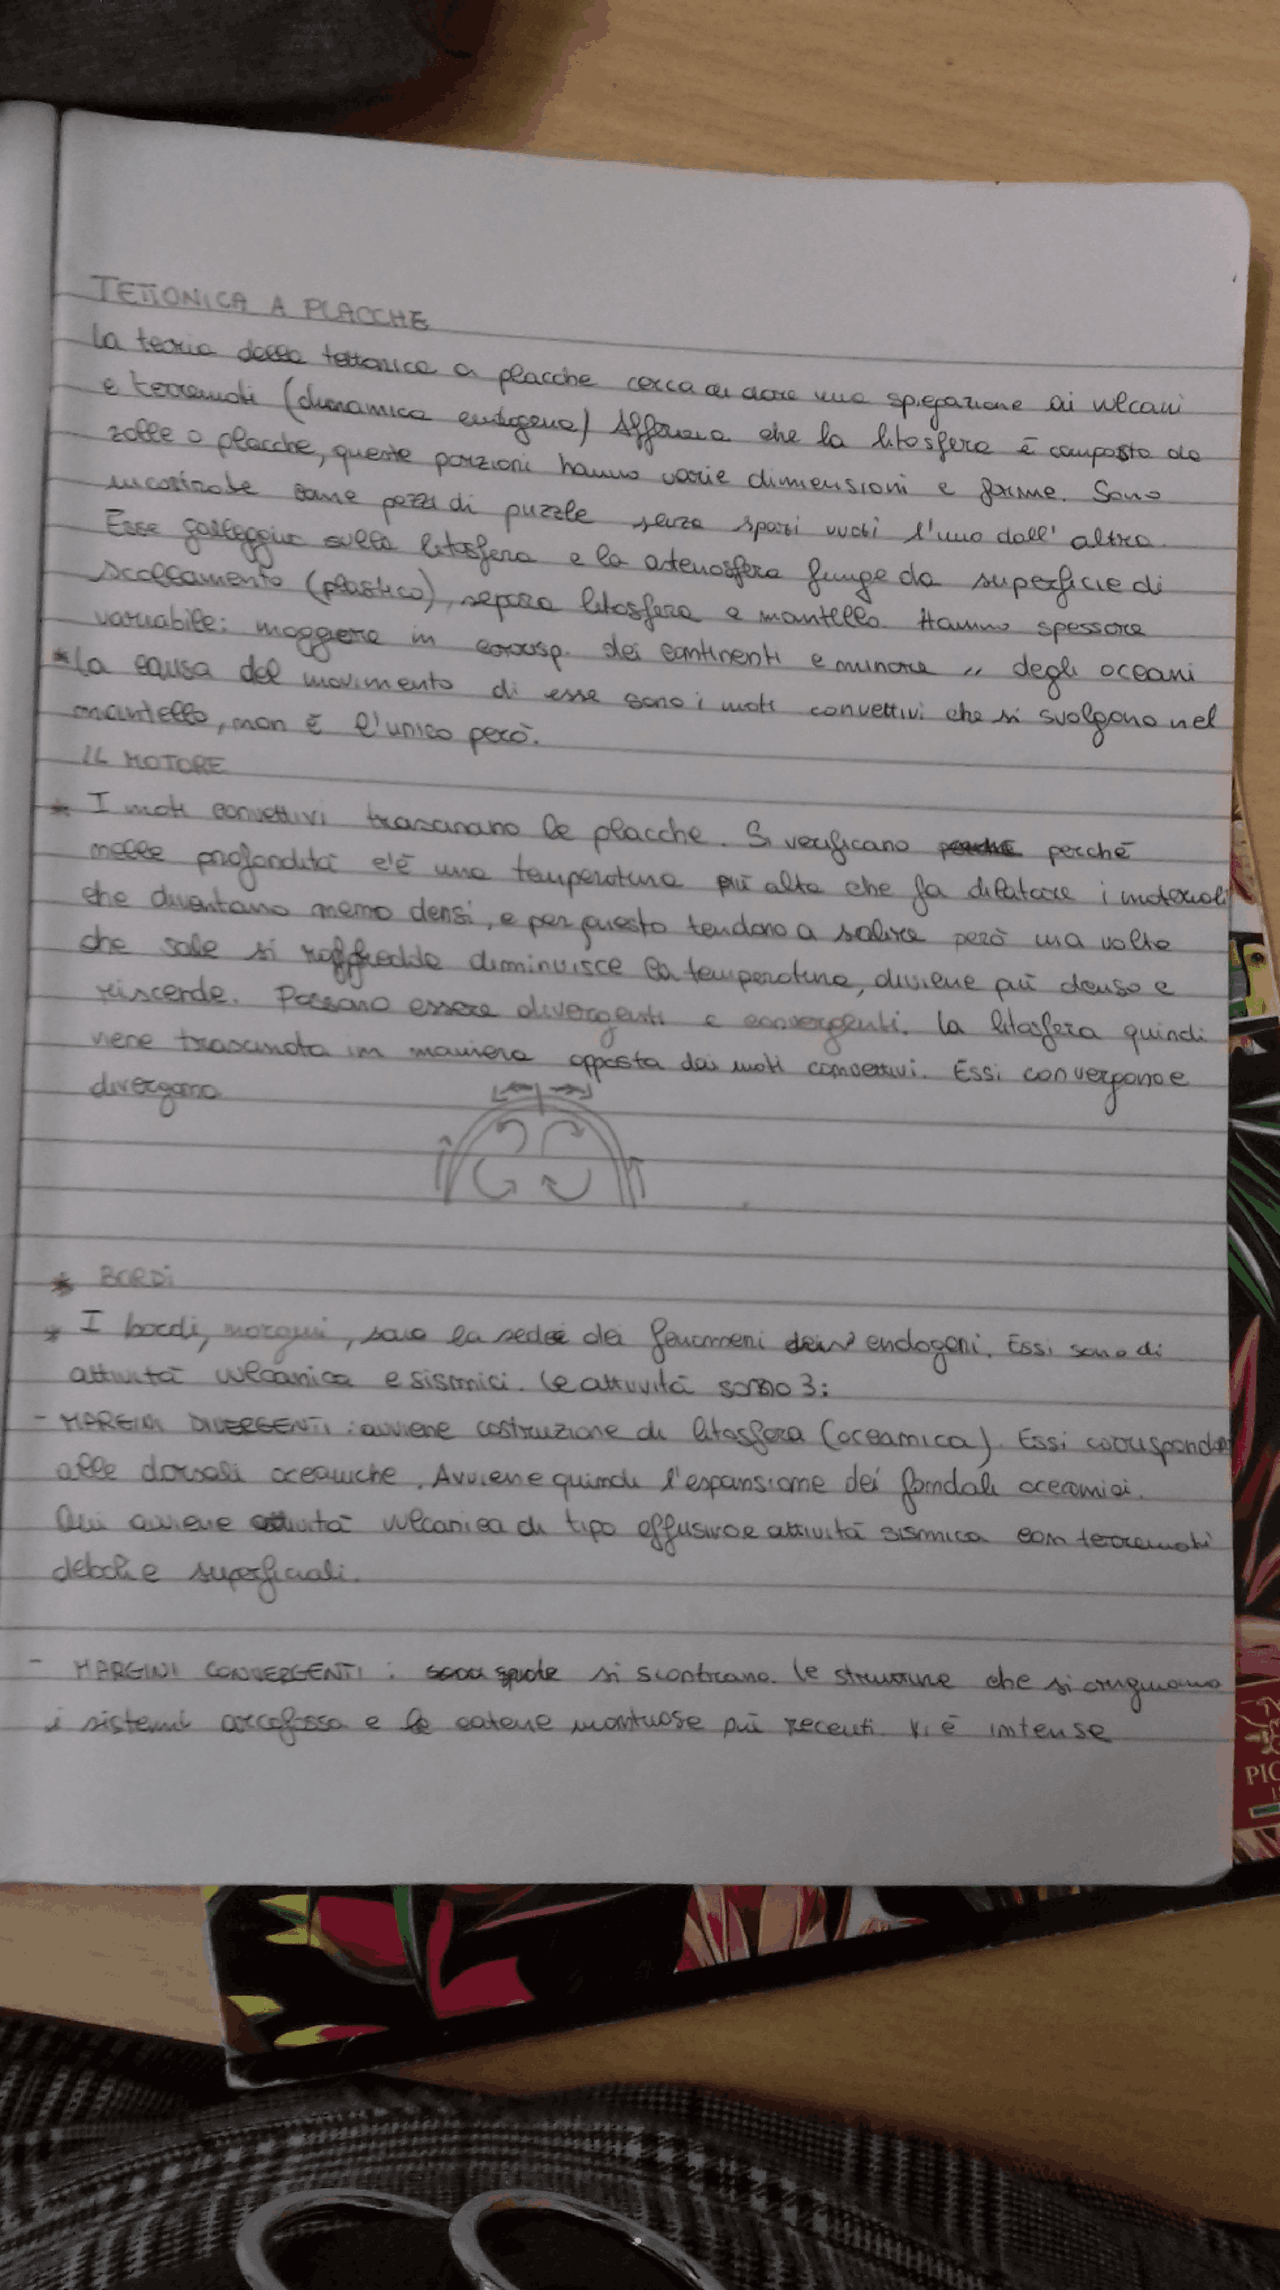 TETTONICA A PLACCHE
La teoria della tettonica a placche cerca di dare una spiegazione ai vulcani
e terremoti (dinamica endogena) Afferma che la litosfera è composta da
zolle o placche, queste porzioni hanno varie dimensioni e forme. Sono
incastrate come pezzi di puzzle senza spazi vuoti l'uno dall'altra.
Esse galleggiano sulla litosfera e la astenosfera funge da superficie di
scollamento (plastico), separa litosfera e mantello. Hanno spessore
variabile: maggiore in corrisp. dei continenti e minore " degli oceani
* La causa del movimento di esse sono i moti convettivi che si svolgono nel
mantello, non è l'unico però.
IL MOTORE
* I moti convettivi trascinano le placche. Si verificano perché
nelle profondità c'è una temperatura più alta che fa dilatare i materiali
che diventano meno densi, e per questo tendono a salire però una volta
che sale si raffredda diminuisce la temperatura, diviene più denso e
riscende. Possono essere divergenti e convergenti. La litosfera quindi
viene trascinata in maniera opposta dai moti convettivi. Essi convergono e
divergono
* BORDI
* I bordi, margini, sono la sede dei fenomeni endogeni. Essi sono di
attività vulcanica e sismici. Le attività sono 3:
- MARGINI DIVERGENTI : avviene costruzione di litosfera (oceanica). Essi corrispondono
alle dorsali oceaniche. Avviene quindi l'espansione dei fondali oceanici.
Qui avviene attività vulcanica di tipo effusivo e attività sismica con terremoti
deboli e superficiali.
- MARGINI CONVERGENTI : si scontrano. Le strutture che si originano
i sistemi arcofossa e le catene montuose più recenti. Vi è intense
PIC